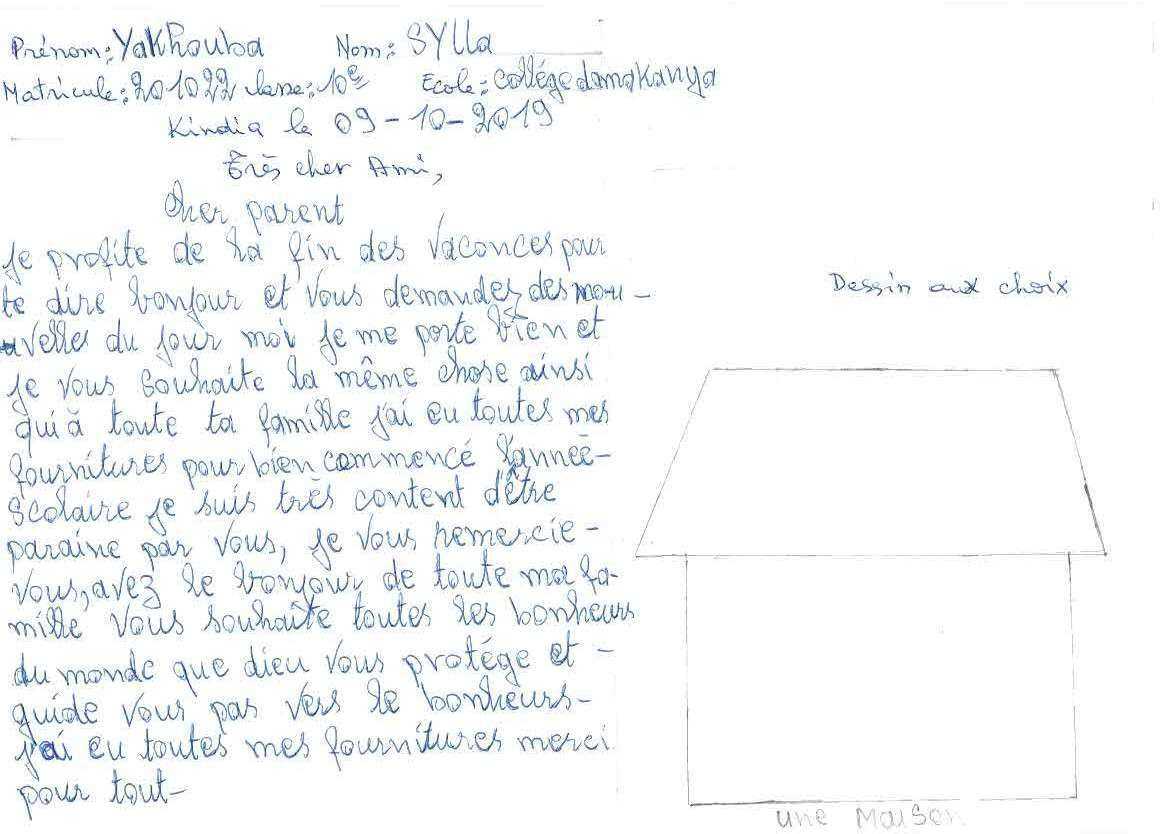 Prénom: YaKhouba Nom: SYlla
Matricule: 201022 classe: 10e Ecole: collége damaKanya
Kindia le 09-10-2019
Très cher Ami,
Cher parent
je profite de la fin des vaconces pour
te dire bonjour et vous demandez des nou-
uvelles du jour moi je me porte bien et
je vous souhaite la même chose ainsi
qui à toute ta famille j'ai eu toutes mes
fournitures pour bien commencé l'année-
scolaire je suis très content d'être
paraine par vous, je vous remercie-
vous, avez le bonjour de toute ma fa-
mille vous souhaite toutes les bonheurs
du monde que dieu vous protége et -
guide vous pas vers le bonheurs-
j'ai eu toutes mes fournitures merci
pour tout-
Dessin aux choix
une maison